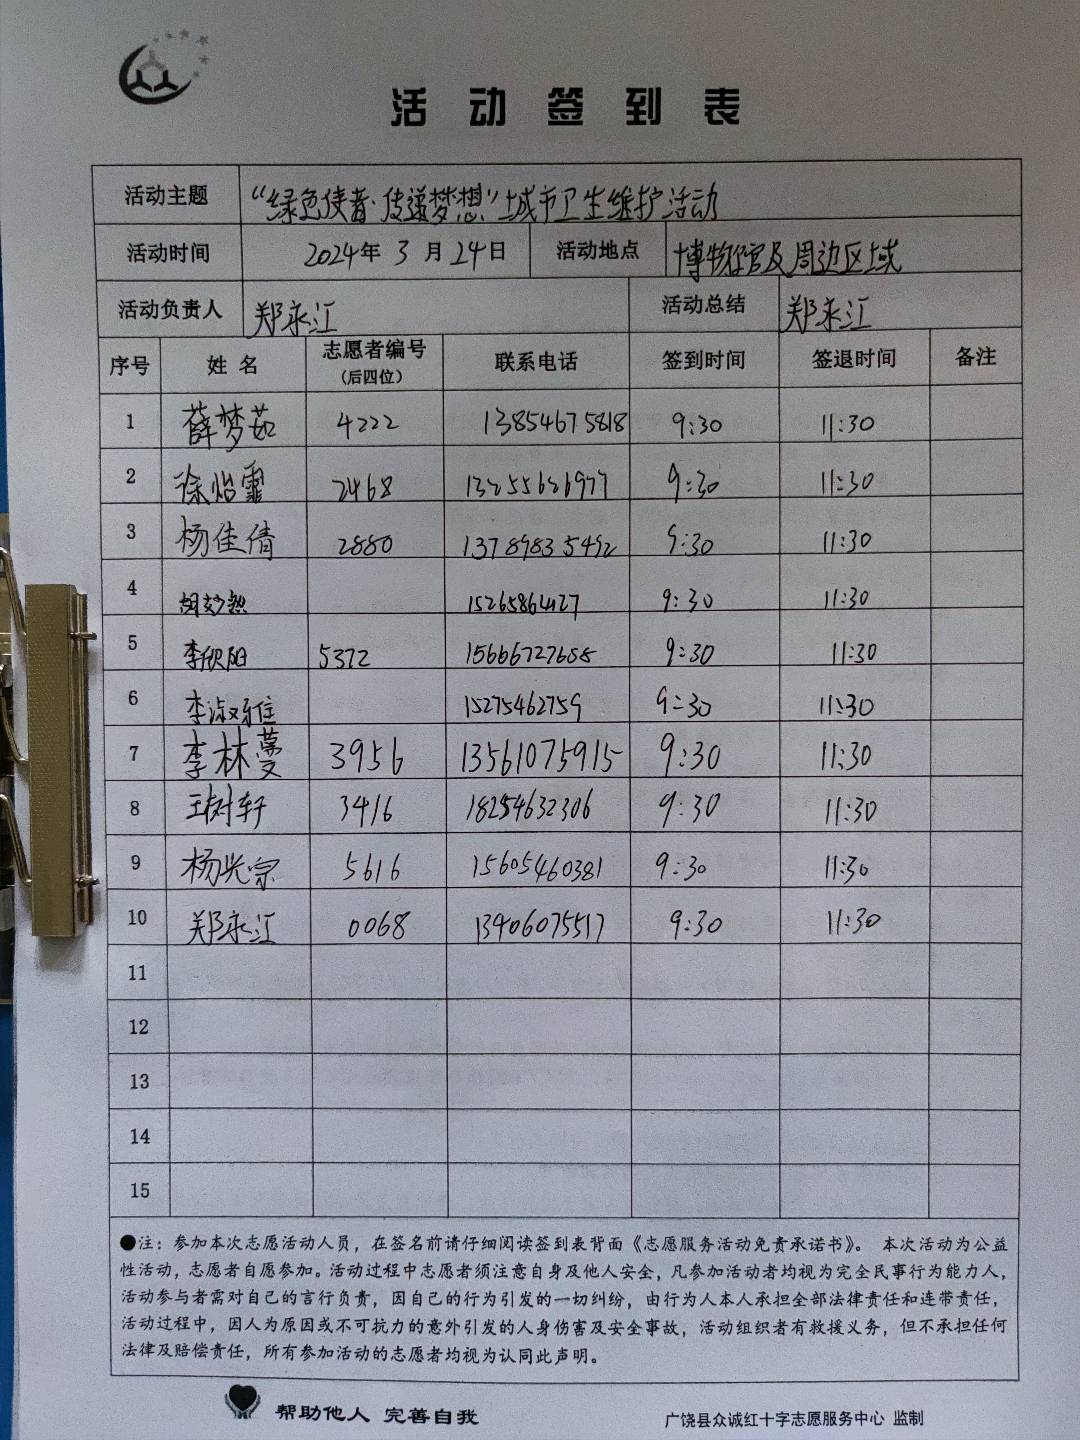 活动签到表
活动主题 “绿色使者·传递梦想”城市卫生维护活动
活动时间 2024年 3 月 24日 活动地点 博物馆及周边区域
活动负责人 郑永江 活动总结 郑永江
序号 姓名 志愿者编号（后四位） 联系电话 签到时间 签退时间 备注
1 薛梦茹 4222 13854675818 9:30 11:30
2 徐怡霏 2468 9:30 11:30
3 杨佳倩 2880 13789835492 9:30 11:30
4 9:30 11:30
5 李欣阳 5372 15666727688 9:30 11:30
6 李淑雅 15275462759 9:30 11:30
7 李林蔓 3956 13561075915 9:30 11:30
8 王树轩 3416 18254632306 9:30 11:30
9 杨光宗 5616 15605460381 9:30 11:30
10 郑永江 0068 13406075517 9:30 11:30
11
12
13
14
15
●注：参加本次志愿活动人员，在签名前请仔细阅读签到表背面《志愿服务活动免责承诺书》。 本次活动为公益
性活动，志愿者自愿参加。活动过程中志愿者须注意自身及他人安全，凡参加活动者均视为完全民事行为能力人，
活动参与者需对自己的言行负责，因自己的行为引发的一切纠纷，由行为人本人承担全部法律责任和连带责任，
活动过程中，因人为原因或不可抗力的意外引发的人身伤害及安全事故，活动组织者有救援义务，但不承担任何
法律及赔偿责任，所有参加活动的志愿者均视为认同此声明。
帮助他人 完善自我
广饶县众诚红十字志愿服务中心 监制